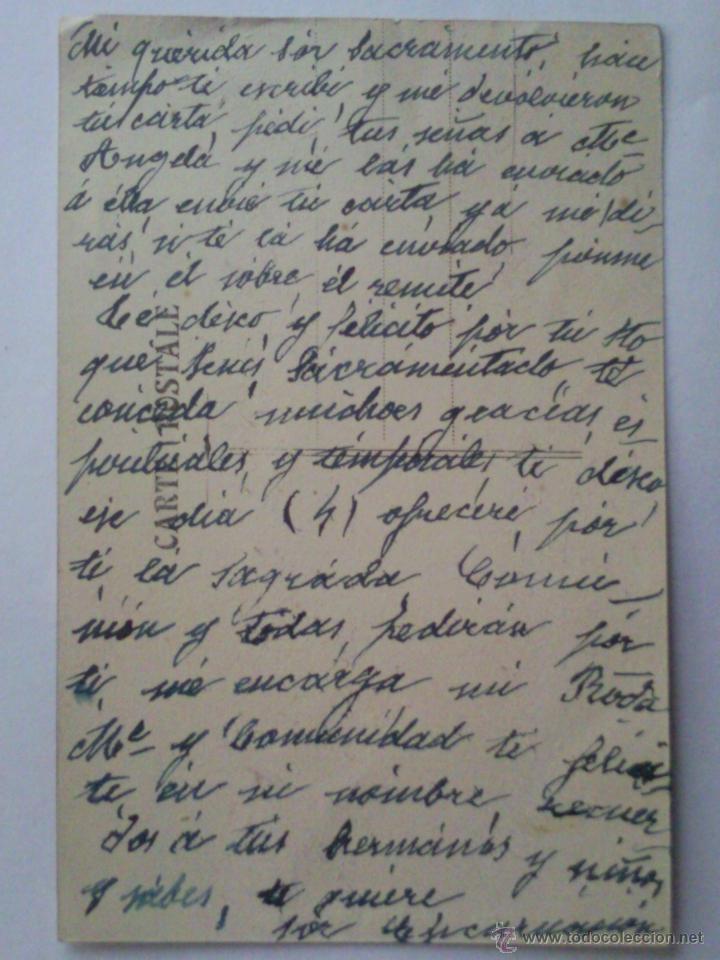 Mi querida Sor Sacramento, hace
tiempo te escribí y me devolvieron
tu carta, pedí tus señas a Me
Angela y me las ha enviado
á élla envié tu carta, ya me di-
rás si te la ha enviado, ponme
en el sobre el remite
Te deseo y felicito por tu Sto
que Jesús Sacramentado te
conceda muchas gracias es-
pirituales y temporales te deseo
ese dia (4) ofreceré por
ti la Sagrada Comu-
nión y todas pedirán por
ti, me encarga mi Rvda
Me y Comunidad te felici-
te en su nombre, recuer
dos á tus hermanos y niños
y sabes te quiere
Sor Encarnación
CARTE POSTALE
www.todocoleccion.net